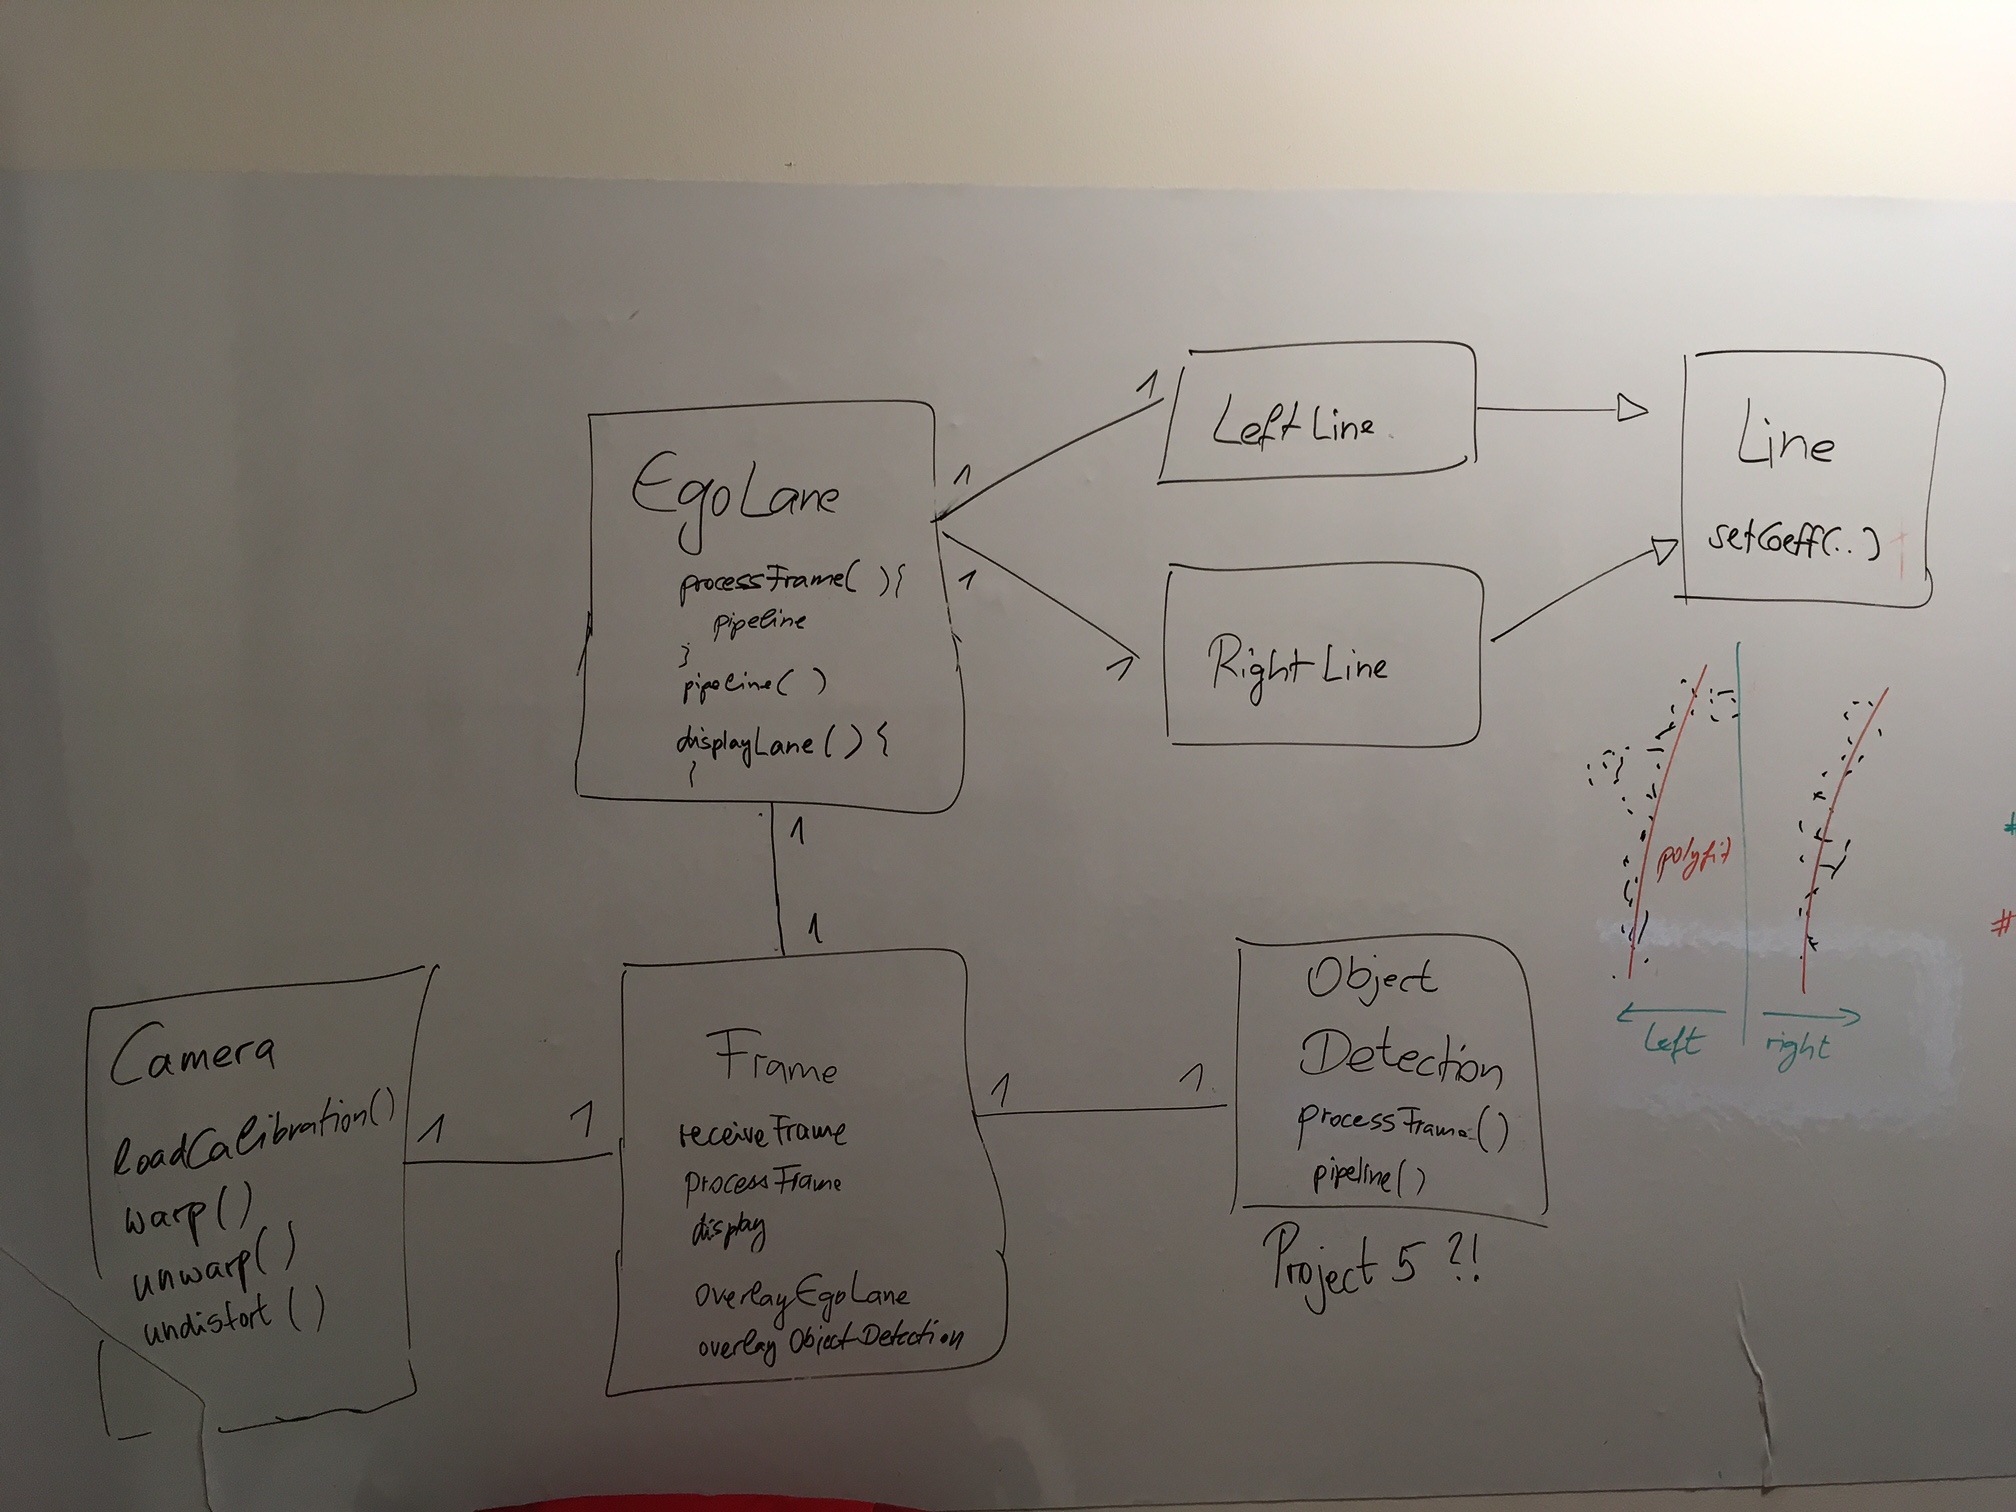 EgoLane
processFrame( ){
pipeline
}
pipeline( )
displayLane ( ) {
}
1
1
1
1
LeftLine
RightLine
Line
setCoeff(..)
1
1
Camera
loadCalibration()
warp()
unwarp()
undistort ()
1
1
Frame
receiveFrame
processFrame
display
overlayEgoLane
overlay ObjectDetection
1
1
Object
Detection
processFrame()
pipeline()
Project 5 ?!
polyfit
left
right
#